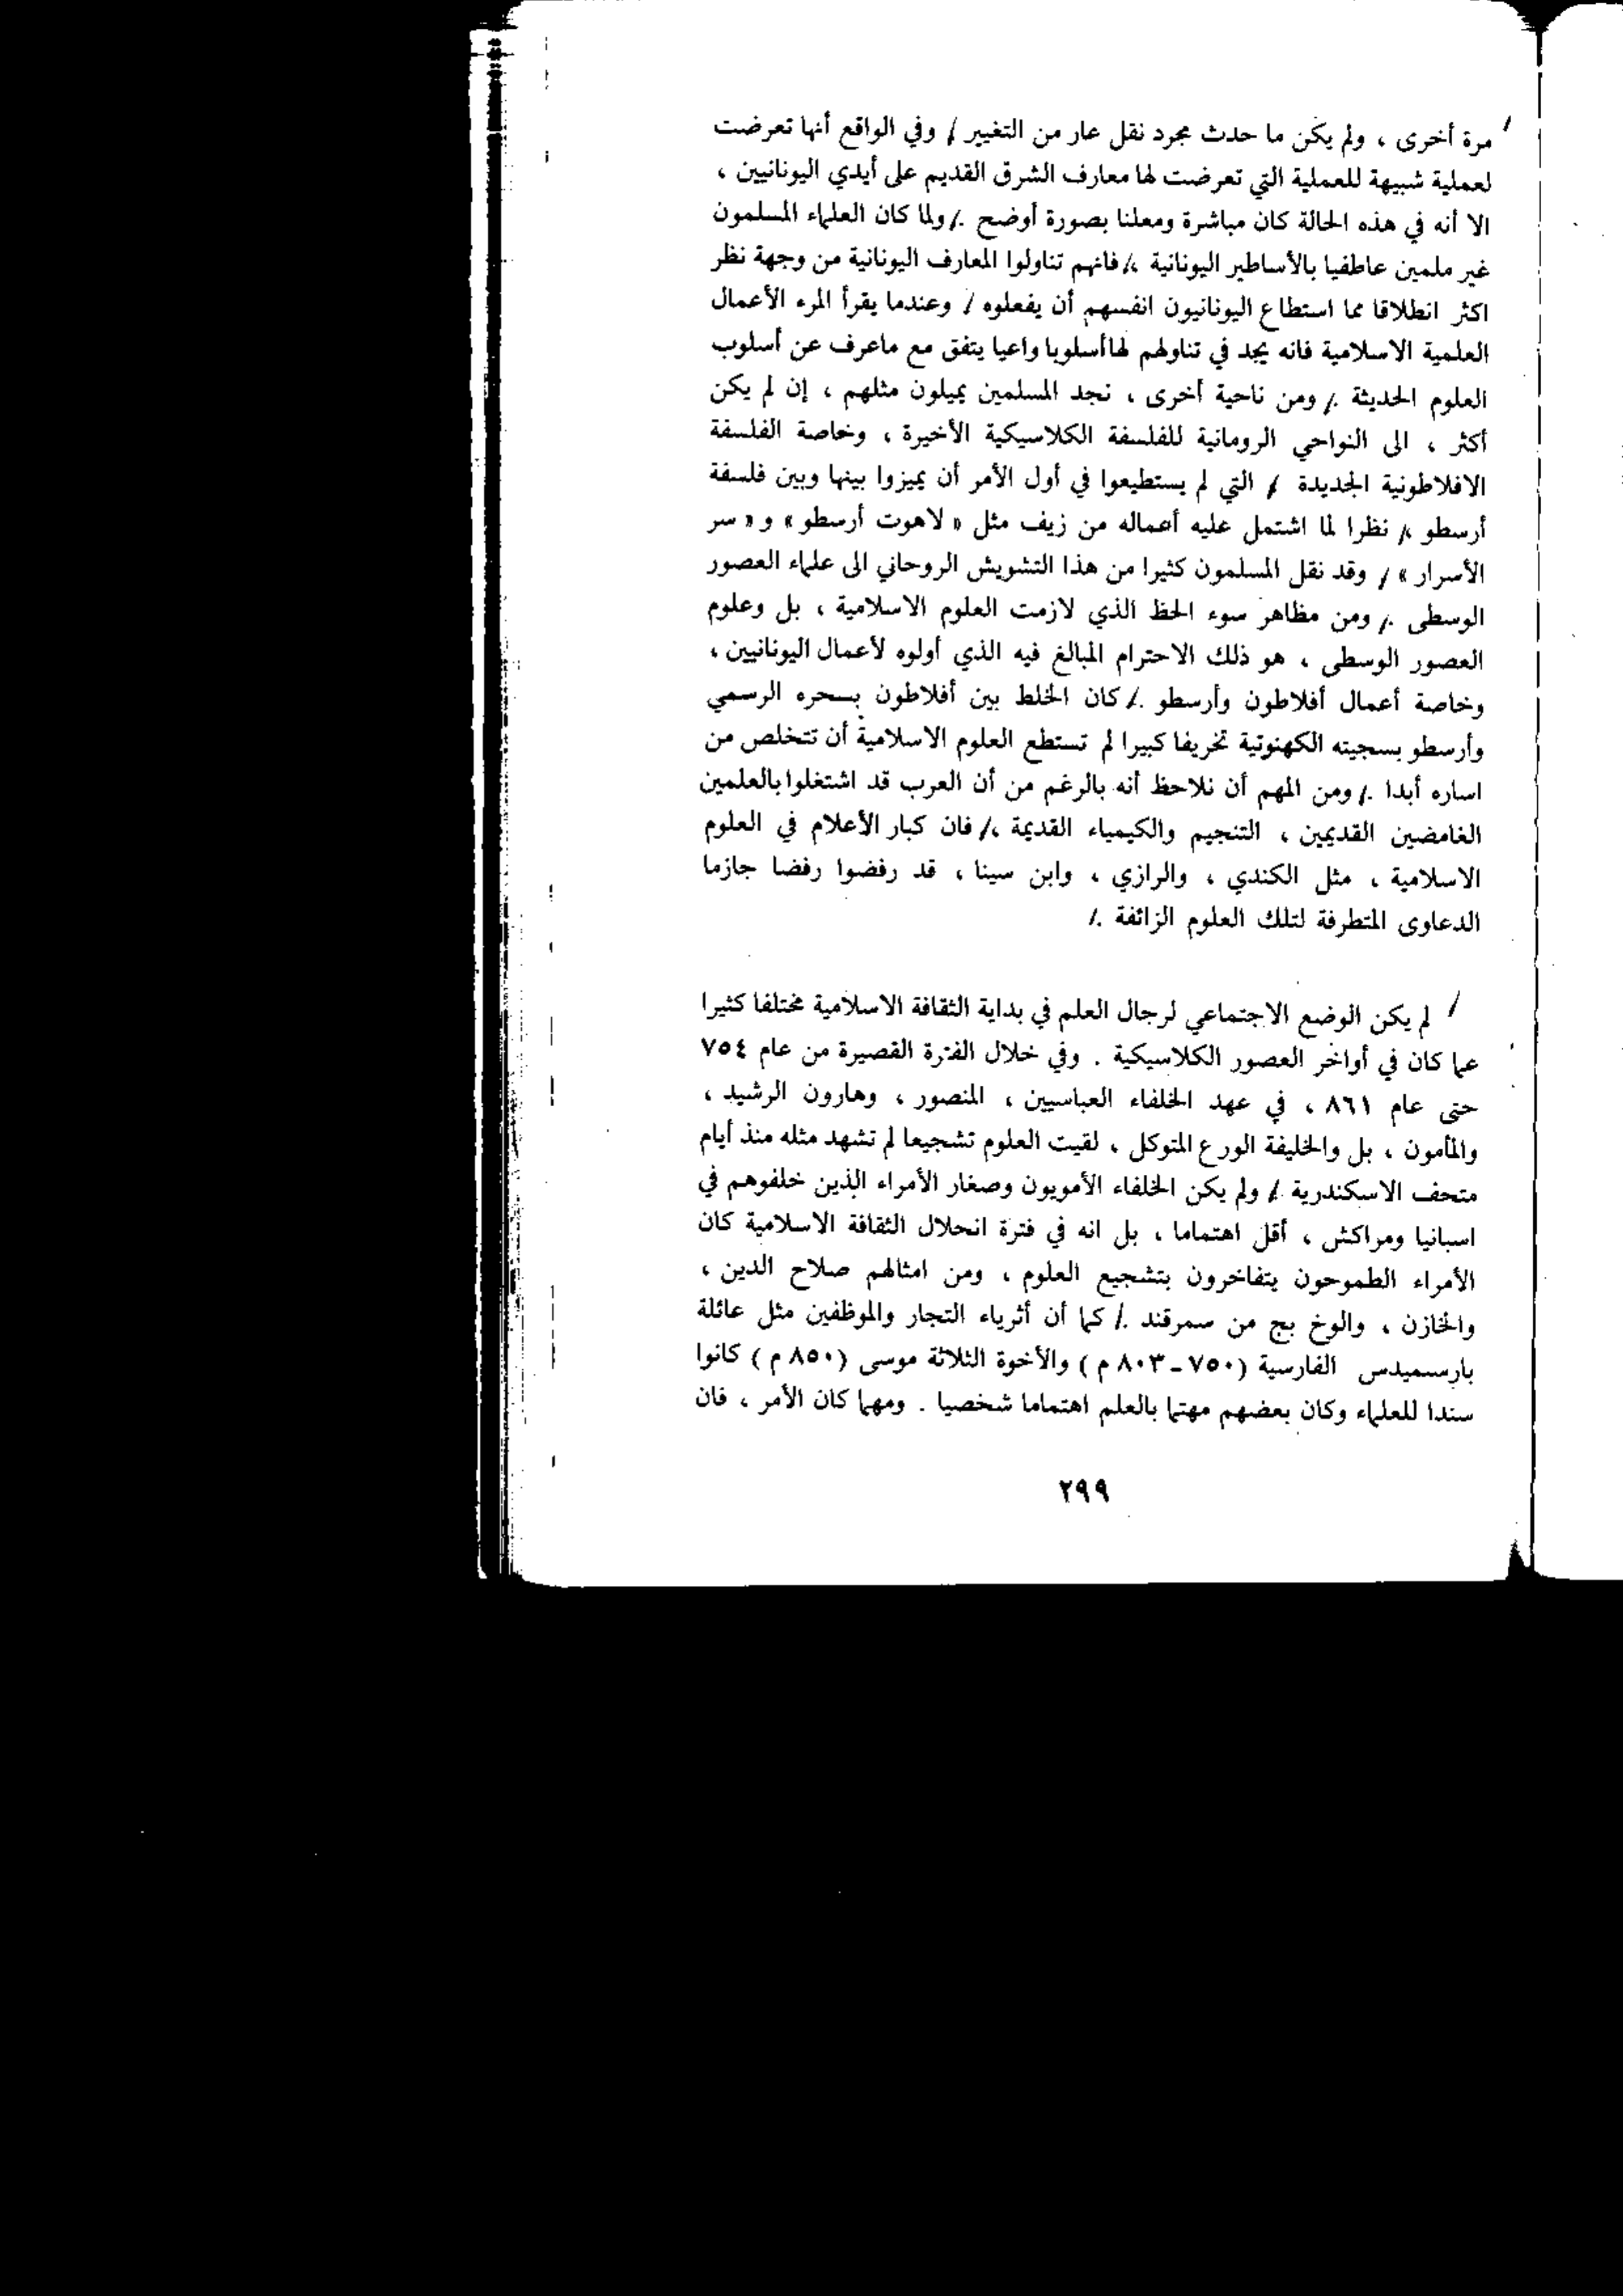 مرة أخرى ، ولم يكن ما حدث مجرد نقل عار من التغيير / وفي الواقع أنها تعرضت
لعملية شبيهة للعملية التي تعرضت لها معارف الشرق القديم على أيدي اليونانيين ،
الا أنه في هذه الحالة كان مباشرة ومعلنا بصورة أوضح ./ ولما كان العلماء المسلمون
غير ملمين عاطفيا بالأساطير اليونانية ،/ فانهم تناولوا المعارف اليونانية من وجهة نظر
اكثر انطلاقا مما استطاع اليونانيون انفسهم أن يفعلوه / وعندما يقرأ المرء الأعمال
العلمية الاسلامية فانه يجد في تناولهم لها أسلوبا واعيا يتفق مع ماعرف عن أسلوب
العلوم الحديثة ./ ومن ناحية أخرى ، نجد المسلمين يميلون مثلهم ، إن لم يكن
أكثر ، الى النواحي الرومانية للفلسفة الكلاسيكية الأخيرة ، وخاصة الفلسفة
الافلاطونية الجديدة / التي لم يستطيعوا في أول الأمر أن يميزوا بينها وبين فلسفة
أرسطو ،/ نظرا لما اشتمل عليه أعماله من زيف مثل « لاهوت أرسطو » و « سر
الأسرار » / وقد نقل المسلمون كثيرا من هذا التشويش الروحاني الى علماء العصور
الوسطى ./ ومن مظاهر سوء الحظ الذي لازمت العلوم الاسلامية ، بل وعلوم
العصور الوسطى ، هو ذلك الاحترام المبالغ فيه الذي أولوه لأعمال اليونانيين ،
وخاصة أعمال أفلاطون وأرسطو ./ كان الخلط بين أفلاطون بسحره الرسمي
وأرسطو بسجيته الكهنوتية تخريفا كبيرا لم تستطع العلوم الاسلامية أن تتخلص من
اساره أبدا ./ ومن المهم أن نلاحظ أنه بالرغم من أن العرب قد اشتغلوا بالعلمين
الغامضين القديمين ، التنجيم والكيمياء القديمة ،/ فان كبار الأعلام في العلوم
الاسلامية ، مثل الكندي ، والرازي ، وابن سينا ، قد رفضوا رفضا جازما
الدعاوى المتطرفة لتلك العلوم الزائفة ./
/ لم يكن الوضع الاجتماعي لرجال العلم في بداية الثقافة الاسلامية مختلفا كثيرا
عما كان في أواخر العصور الكلاسيكية . وفي خلال الفترة القصيرة من عام ٧٥٤
حتى عام ٨٦١ ، في عهد الخلفاء العباسيين ، المنصور ، وهارون الرشيد ،
والمأمون ، بل والخليفة الورع المتوكل ، لقيت العلوم تشجيعا لم تشهد مثله منذ أيام
متحف الاسكندرية / ولم يكن الخلفاء الأمويون وصغار الأمراء الذين خلفوهم في
اسبانيا ومراكش ، أقل اهتماما ، بل انه في فترة انحلال الثقافة الاسلامية كان
الأمراء الطموحون يتفاخرون بتشجيع العلوم ، ومن امثالهم صلاح الدين ،
والخازن ، والوخ بج من سمرقند ./ كما أن أثرياء التجار والموظفين مثل عائلة
بارسميدس الفارسية (٧٥٠ - ٨٠٣ م ) والأخوة الثلاثة موسى (٨٥٠ م ) كانوا
سندا للعلماء وكان بعضهم مهتما بالعلم اهتماما شخصيا . ومهما كان الأمر ، فان
٢٩٩